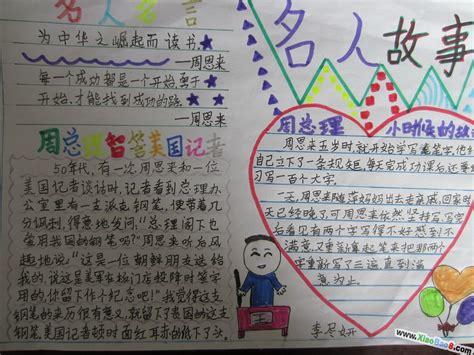 名人名言
为中华之崛起而读书★
—周恩来
每一个成功都是一个开始,勇于
开始,才能找到成功的路
—周恩来
周总理智答美国记者
50年代,有一次,周恩来和一位
美国记者谈话时,记者看到总理办
公室里有一支派克钢笔,便带着几
分讽刺,得意地发问:“总理阁下也
常用我国的钢笔吗?”周恩来听后风
趣地说:“这是一位朝鲜朋友送给
我的,说这是美军在板门店投降时签字
用的,你留下作个纪念吧!”我觉得这支
钢笔的来历很有意义,就留下了贵国的这支
钢笔,美国记者顿时面红耳赤的低下了头。
名人故事
周总理 小时候的故
周恩来五岁时,就开始学写毛笔字,他给
自己立下了一条规矩,每天完成功课后还要坚
习写一百个大字。
一天,周恩来随陈妈妈出去走亲戚,回家时
天已经晚了,可周恩来依然坚持写完字,写完
后看见有两个字写得不好感到不
满意,又重新拿起笔来把那两个
字重新写了三遍,直到满
意为止。
王
李尽妍
www.XiaoBao8.com